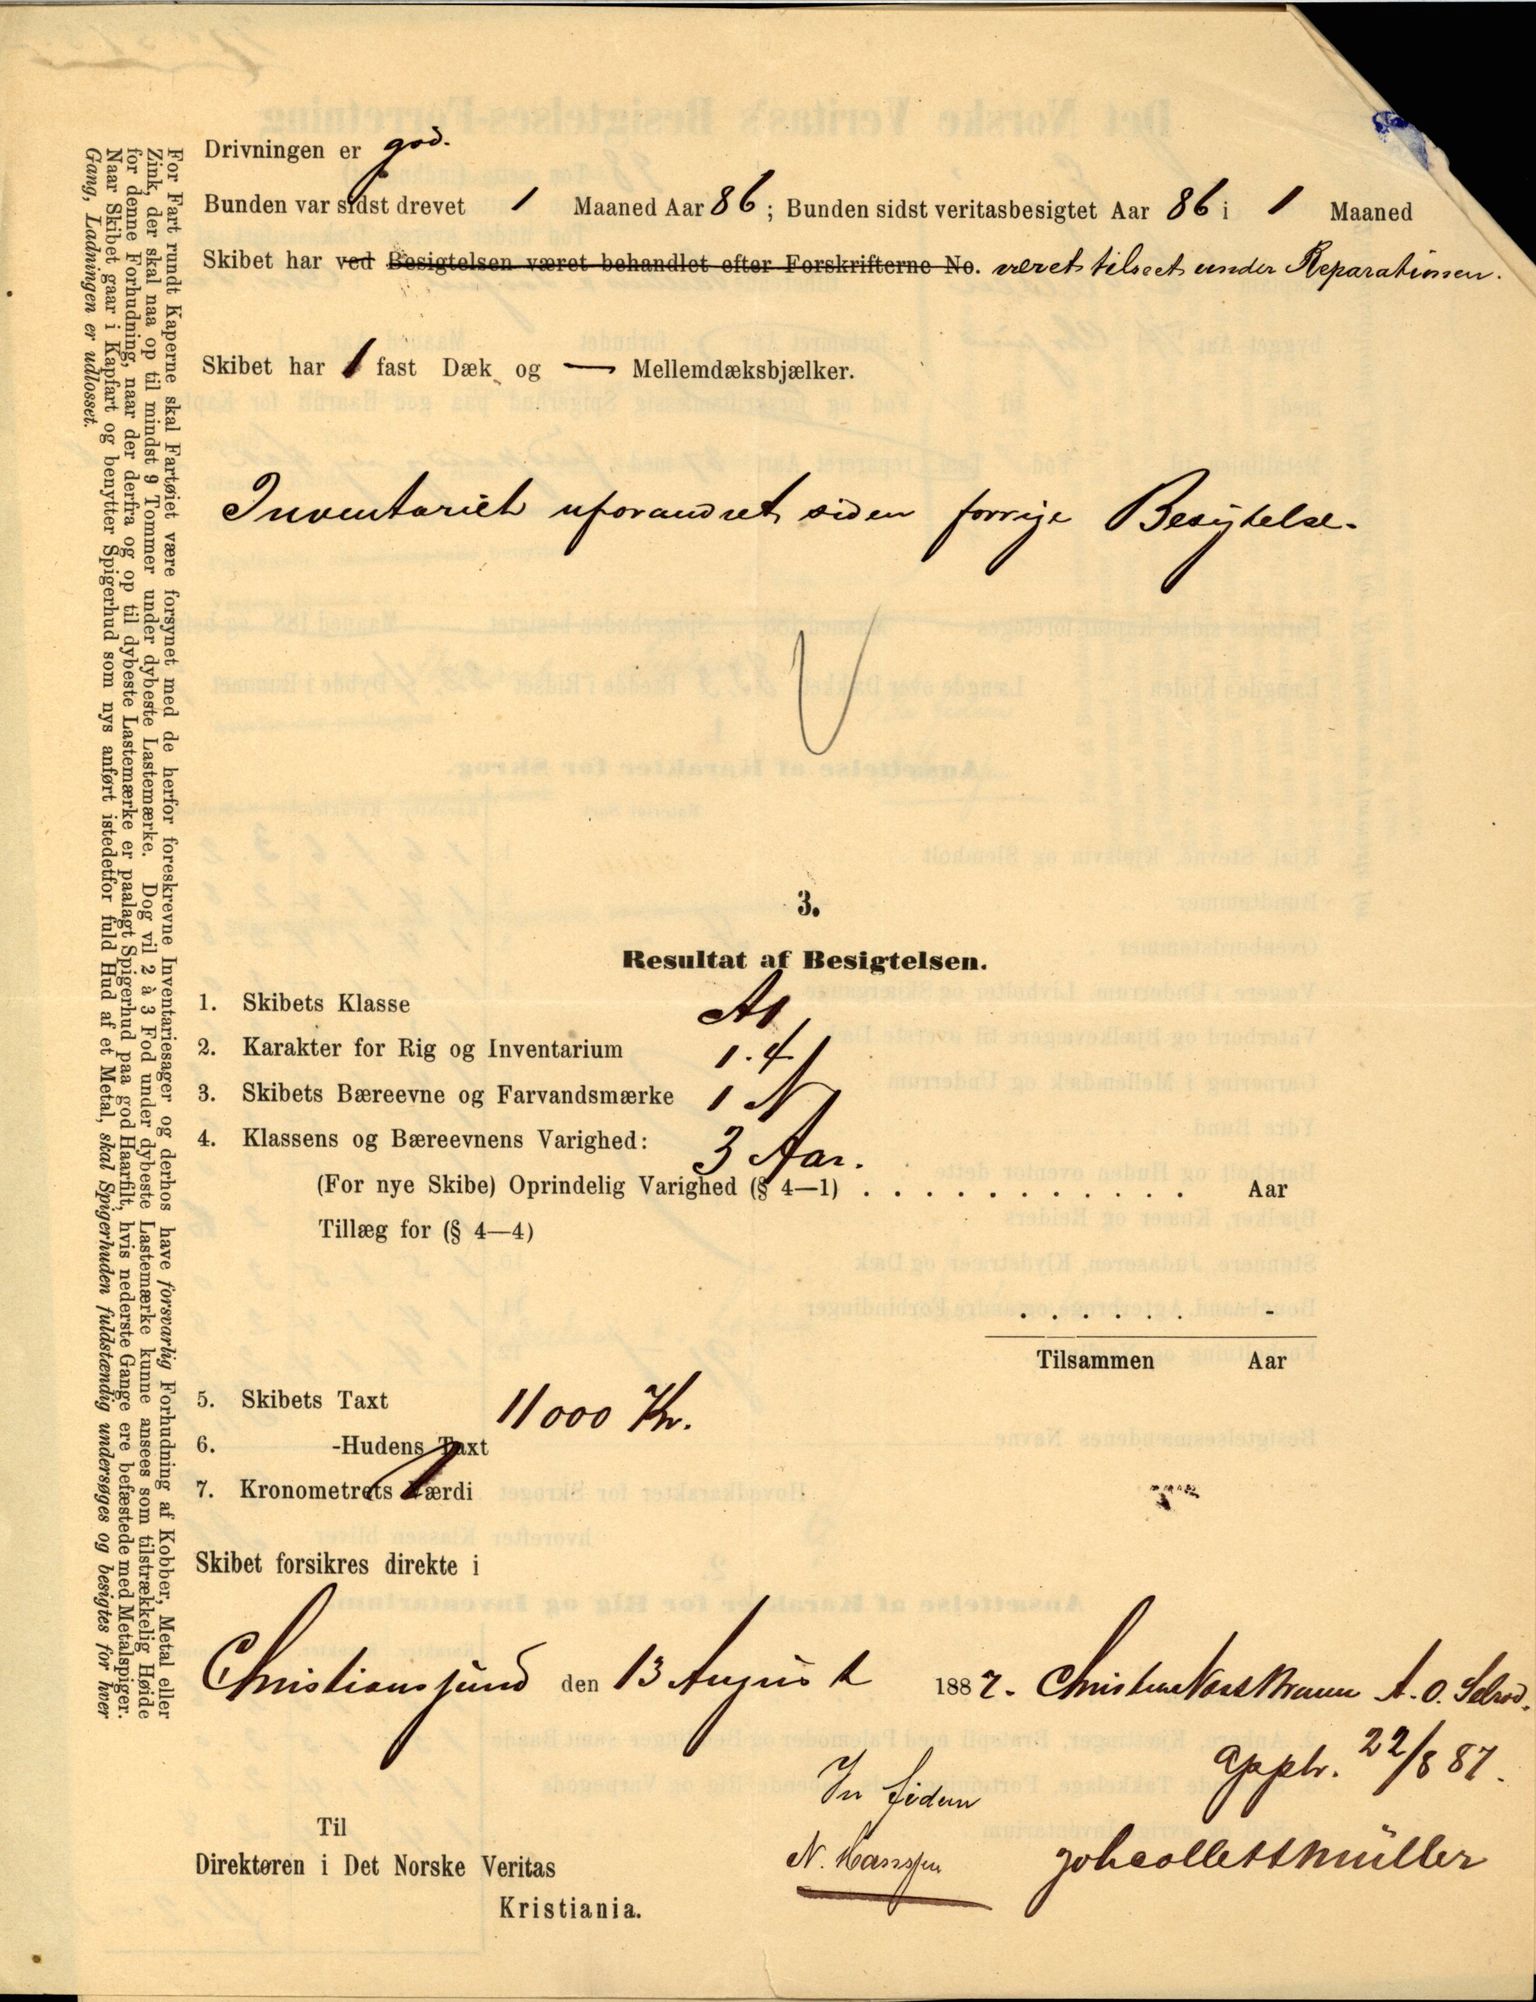 Drivningen er god.
Bunden var sidst drevet 1 Maaned Aar 86; Bunden sidst veritasbesigtet Aar 86 i 1 Maaned
Skibet har ved Besigtelsen været behandlet efter Forskrifterne No. været tilseet under Reparationen.
Skibet har 1 fast Dæk og — Mellemdæksbjælker.
Inventariet uforandret siden forrige Besigtelse.
3.
Resultat af Besigtelsen.
1. Skibets Klasse A1
2. Karakter for Rig og Inventarium 1.4
3. Skibets Bæreevne og Farvandsmærke 1 N
4. Klassens og Bæreevnens Varighed: 3 Aar.
(For nye Skibe) Oprindelig Varighed (§ 4—1) . . . . . . . . . . . . Aar
Tillæg for (§ 4—4)
. . . . . . -
Tilsammen Aar
5. Skibets Taxt 11000 Kr.
6. -Hudens Taxt
7. Kronometrets Værdi
Skibet forsikres direkte i
Christianssund den 13 August 1887. A. O.
apptr. 22/8 87.
N. Hanssen
Joh Collett Müller
Til
Direktøren i Det Norske Veritas
Kristiania.
For Fart rundt Kaperne skal Fartøiet være forsynet med de herfor foreskrevne Inventariesager og derhos have forsvarlig Forhudning af Kobber, Metal eller
Zink, der skal naa op til mindst 9 Tommer under dybeste Lastemærke. Dog vil 2 à 3 Fod under dybeste Lastemærke kunne ansees som tilstrækkelig Høide
for denne Forhudning, naar der derfra og op til dybeste Lastemærke er paalagt Spigerhud paa god Haarfilt, hvis nederste Gange ere befæstede med Metalspiger.
Naar Skibet gaar i Kapfart og benytter Spigerhud som nys anført istedetfor fuld Hud af et Metal, skal Spigerhuden fuldstændig undersøges og besigtes for hver
Gang, Ladningen er udlosset.